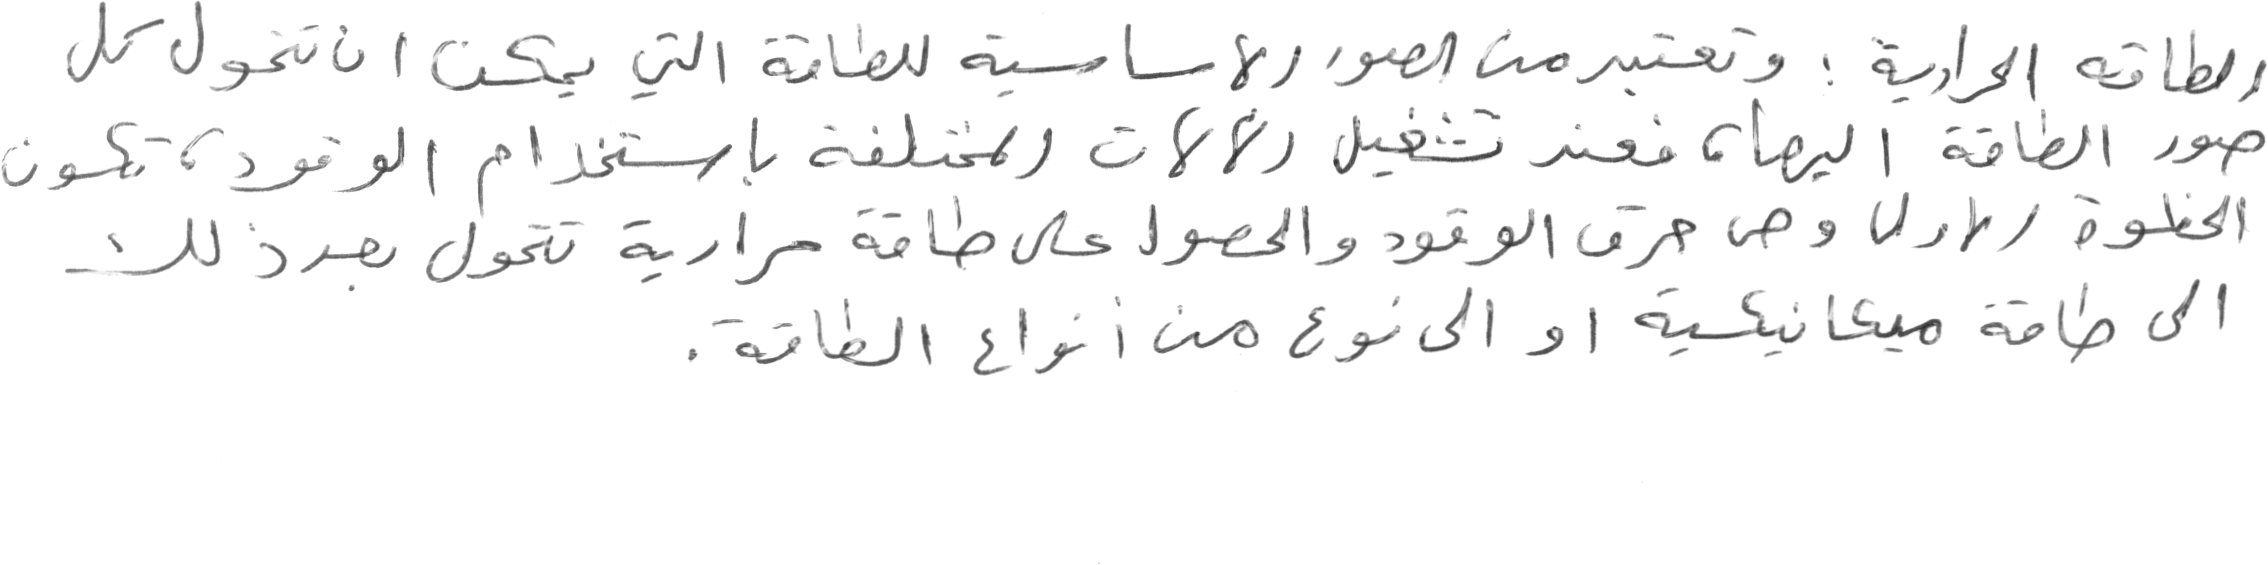 الطاقه الحرارية : وتعتبر من الصور الأساسية للطاقة التي يمكن ان تتحول كل
صور الطاقة اليها، فعند تشغيل الألات المختلفة بإستخدام الوقود، تكون
الخطوة الاولى وهى حرق الوقود والحصول على طاقة حرارية تتحول بعد ذلك
الى طاقة ميكانيكية او الى نوع من أنواع الطاقة.